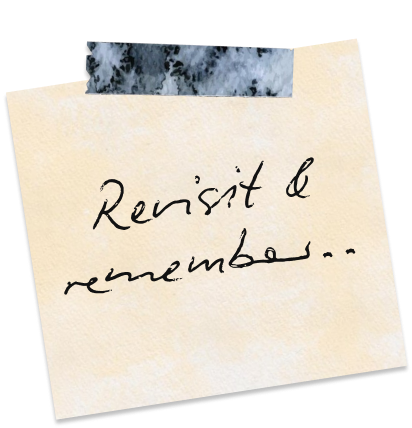 Revisit &
remember...